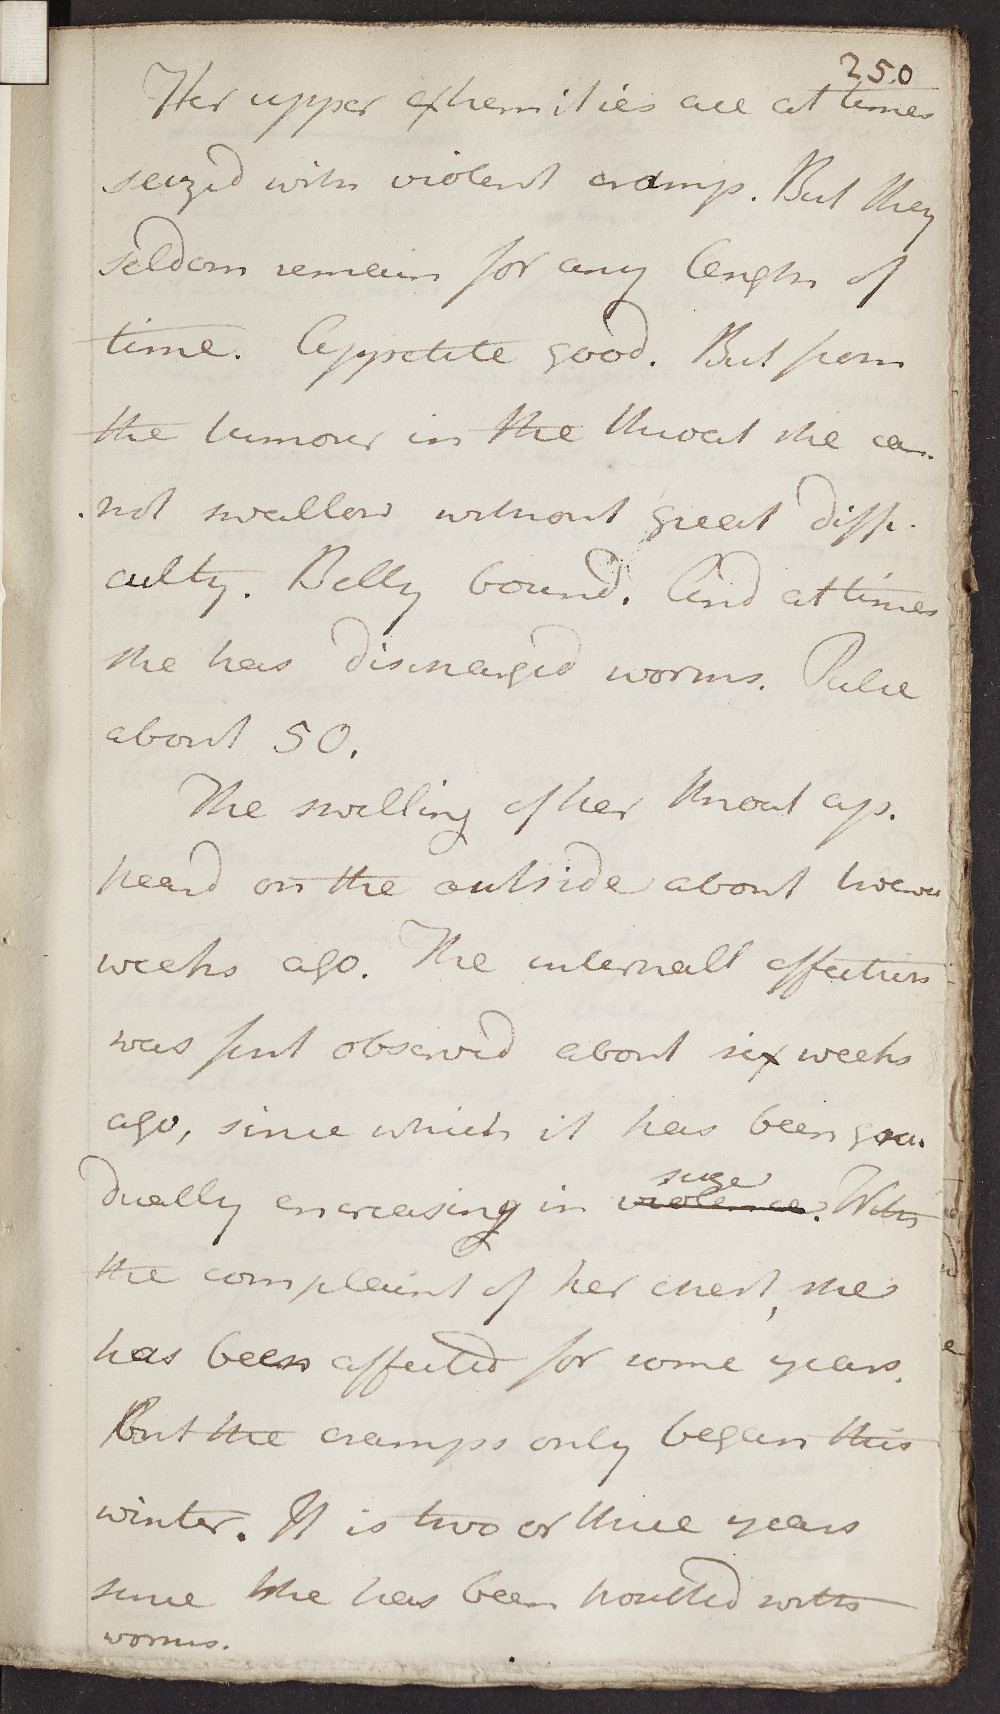 250
Her upper extremities are at times
seized with violent cramp. But they
seldom remain for any length of
time. Appetite good. But from
the tumour in the throat she can-
-not swallow without great diffi-
culty. Belly bound. And at times
she has discharged worms. Pulse
about 50.
The swelling of her throat ap-
heard on the outside about twelve
weeks ago. The internall affection
was first observed about six weeks
ago, since which it has been gra-
size
dually encreasing in violence. With
the complaint of her chest, she
has been affected for some years.
But the cramps only began this
winter. It is two or three years
since she has been troubled with
worms.